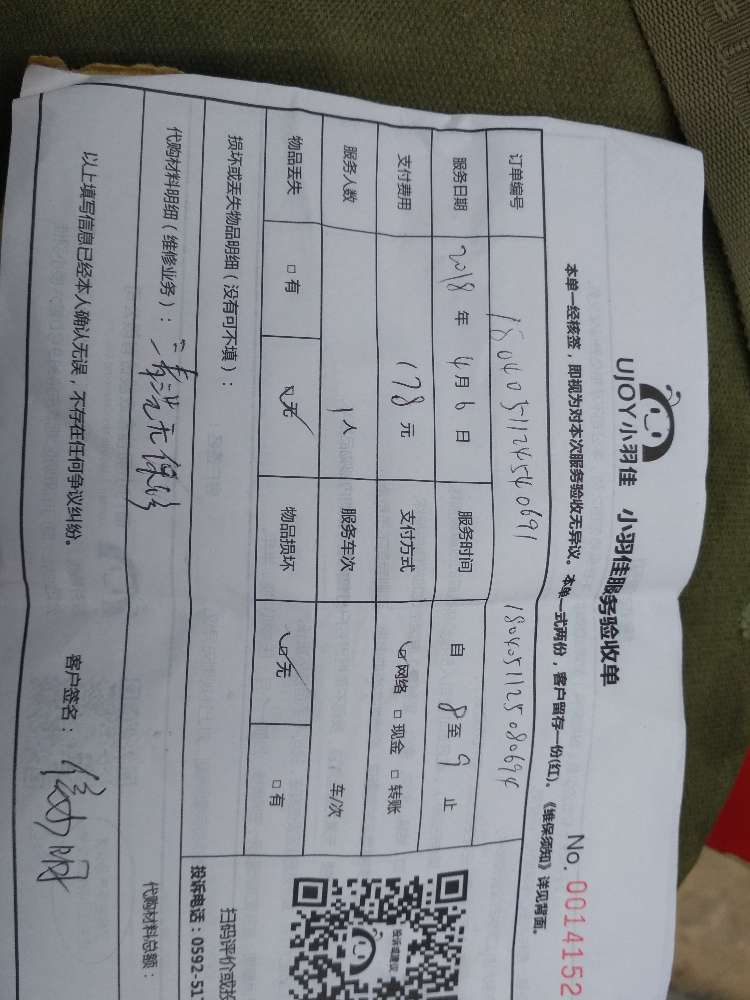 UJOY小羽佳 小羽佳服务验收单
No. 0014152
本单一经核签，即视为对本次服务验收无异议。本单一式两份，客户留存一份(红)、《维保须知》详见背面。
订单编号 1804051124540691 1804051125080694
服务日期 2018 年 4 月 6 日 服务时间 自 8 至 9 止
支付费用 178 元 支付方式 ☑网络 □现金 □转账
服务人数 1 人 服务车次 车/次
物品丢失 □有 ☑无 物品损坏 ☑无 □有
损坏或丢失物品明细（没有可不填）：
代购材料明细（维修业务）： 清洗无保修
代购材料总额：
以上填写信息已经本人确认无误，不存在任何争议纠纷。 客户签名：
投诉或建议
扫码评价或投
投诉电话：0592-517